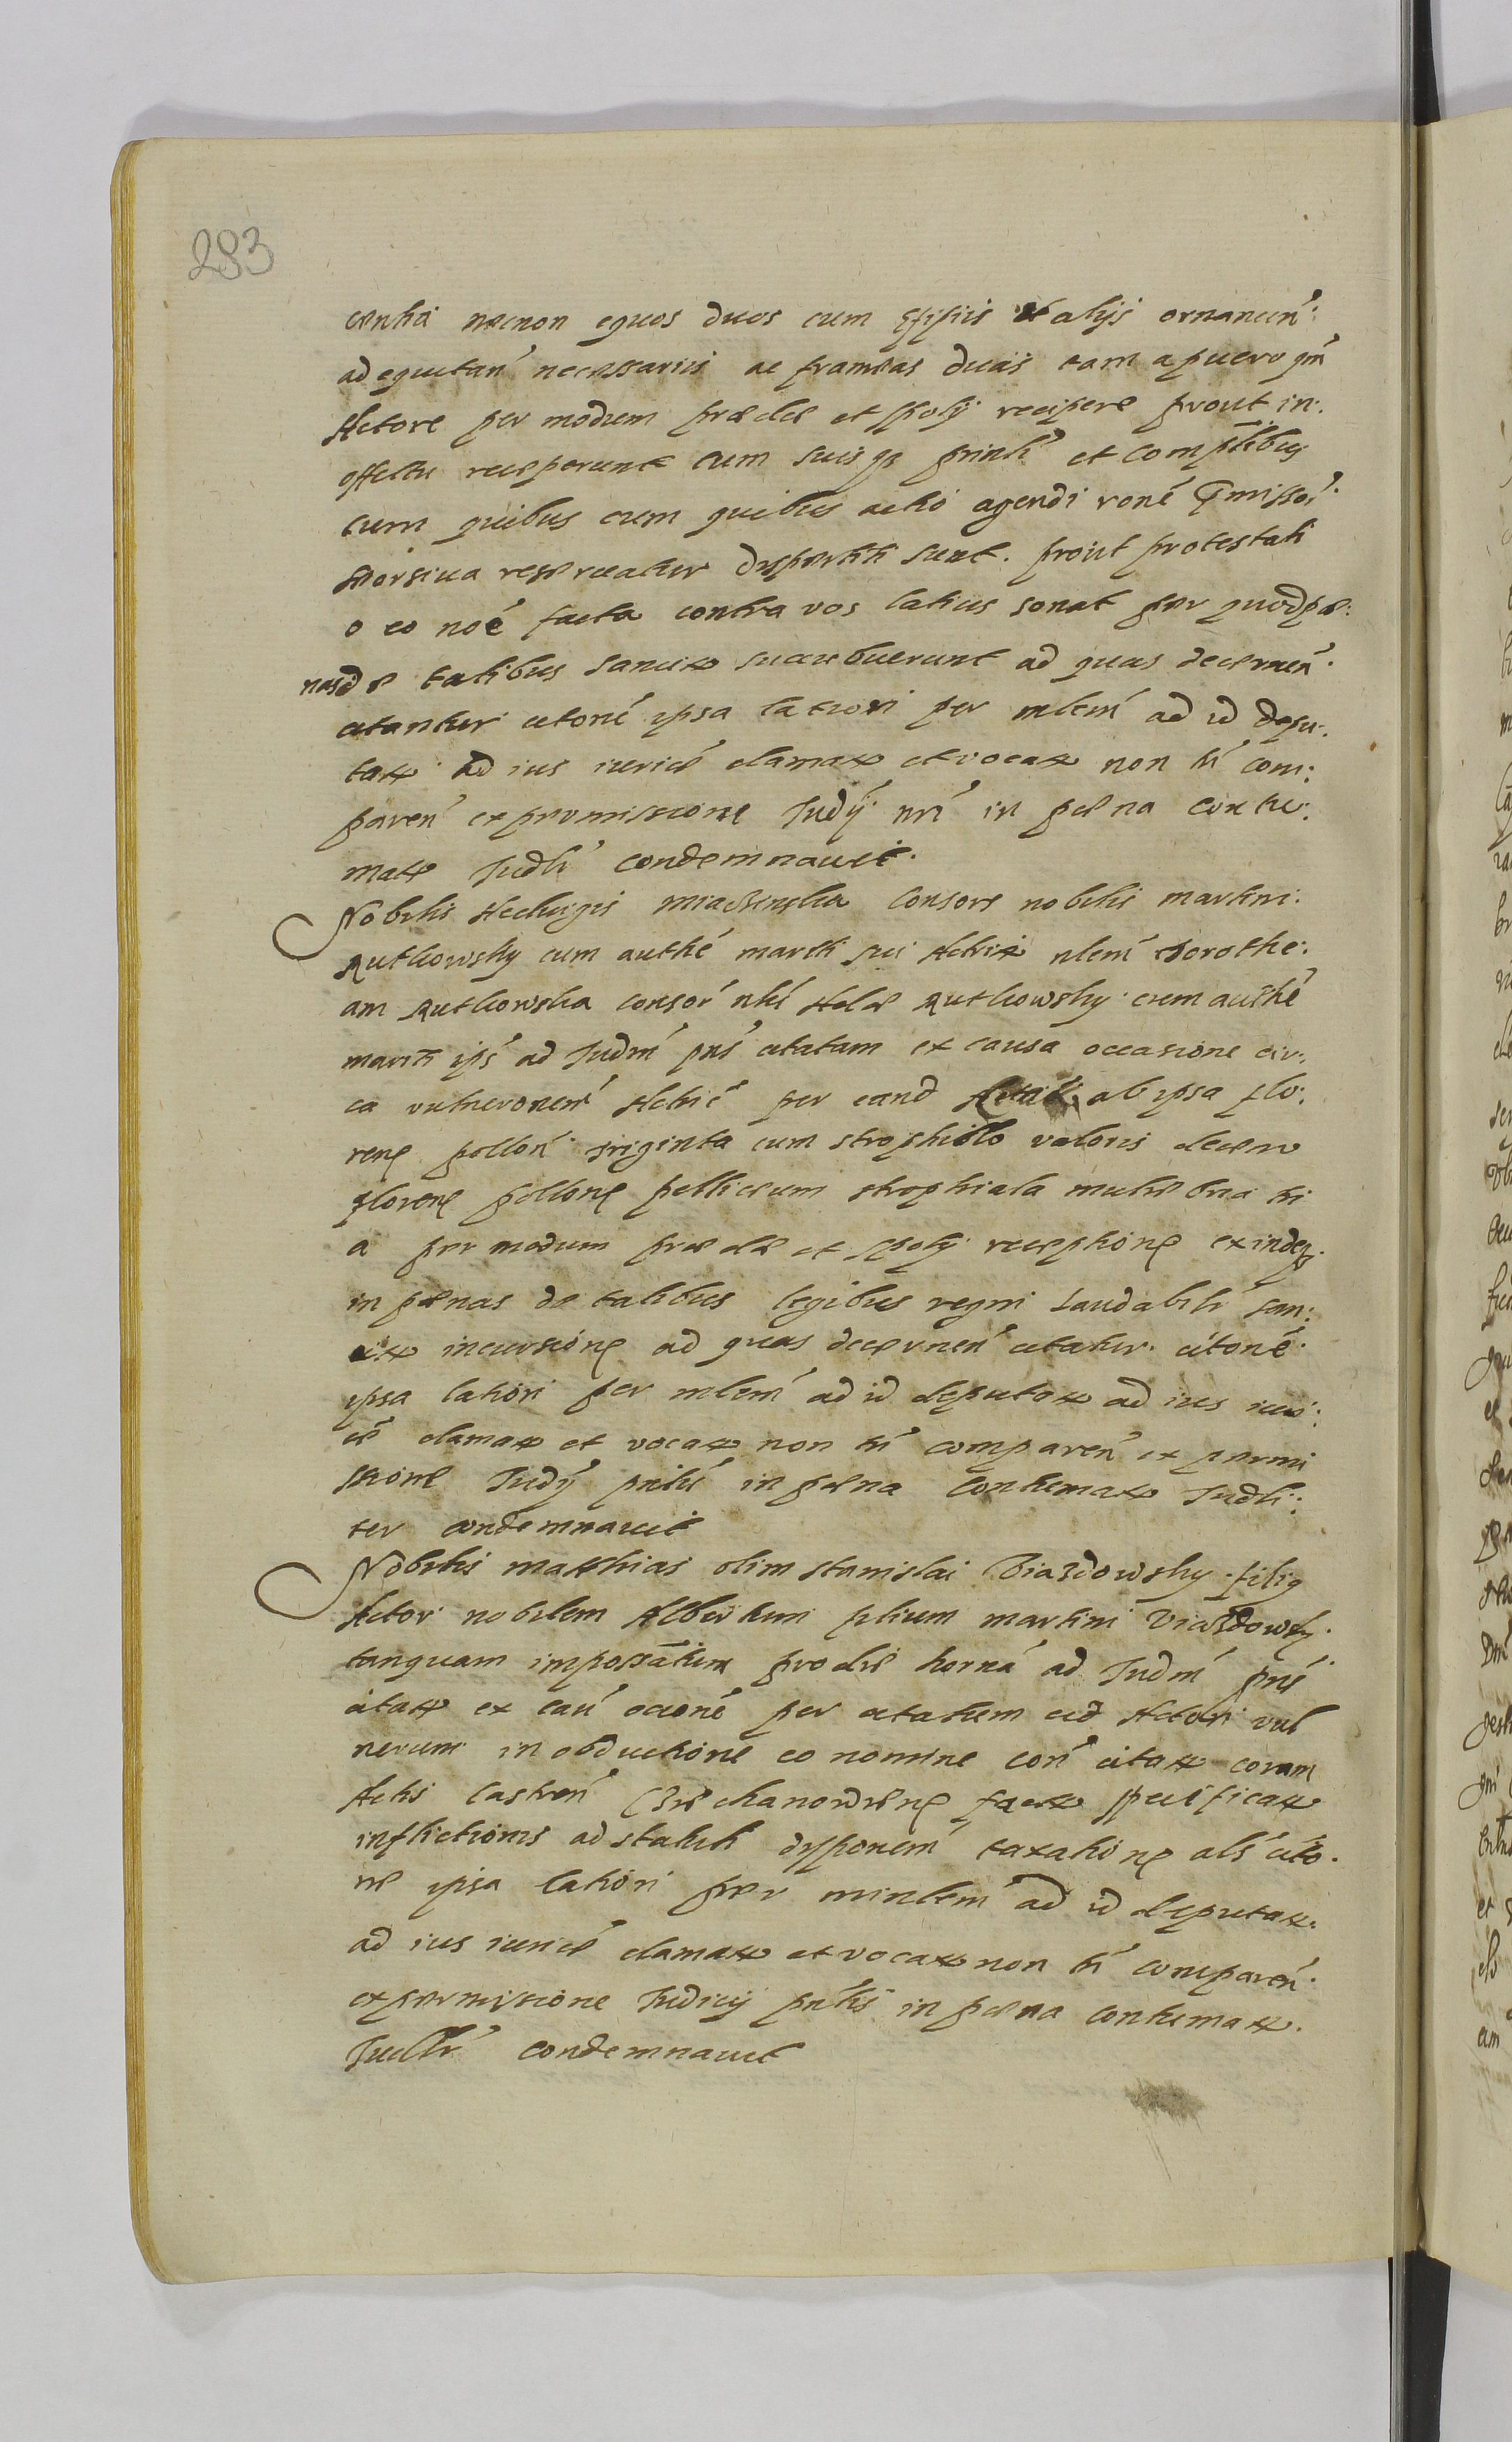 283
centia necnon equos duos cum Ephipiis et alijs ornamen:
ad equitan necessariis ac frameas duas tam a puero qm
Actore per modum prædæ et spolij recipere prout in:
effectu receperunt cum suis principal et complicibus
cum quibus cum quibus actio agendi rone præmissor
seorsiva reservatur dispartiti sunt. prout protestati
o eo noe facta contra vos latius sonat per quod pœ:
nas de talibus sancit succubuerunt ad quas decernen
citantur citone ipsa latiori per mlem ad id depu:
tat ad ius iurice clamat et vocat non tn com:
paren ex permissione Judij nri in pœna contu:
mat Judlr condemnavit.
Nobilis Hedvigis consors nobilis martini
Rutkowsky cum authe mariti sui Actrix nlem Dorothe:
am Rutkowska consor nbl Adæ Rutkowsky cum authe
mariti ips ad Judm pns citatam ex causa occasione cir:
ca vulneronem Actric per eand ab ipsa flo:
reno pollon triginta cum strophiolo valoris decem
floreno pollono pelliceum strophiala muliebria tri
a per modum prædæ et spolij receptione exindeq
in pœnas de talibus legibus regni laudabilr san:
cit incursione ad quas decernen citatur. citone
ipsa latiori per mlem ad id deputat ad ius iuri:
ce clamat et vocat non tn comparen ex permi
ssione Judij pntis in pœna contumat Judli:
ter condemnavit
Nobilis Matthias olim Stanislai Biazdowsky filiq
Actor nobilem Albertum filium martini Biazdowsky
tanquam impossatum pro die horna ad Judm pns
citat ex cau ocione per citatum eid Actori vul
nerum in obductione eo nomine con citat coram
Actis Castren Cziechanowiene fact specificat
inflictionis ad statuti disponem taxatione als cito
ne ipsa latiori per minlem ad id deputat
ad ius iurice clamat et vocat non tn comparen
ex permissione Judicij pntis in pœna contumat.
Judlr condemnavit